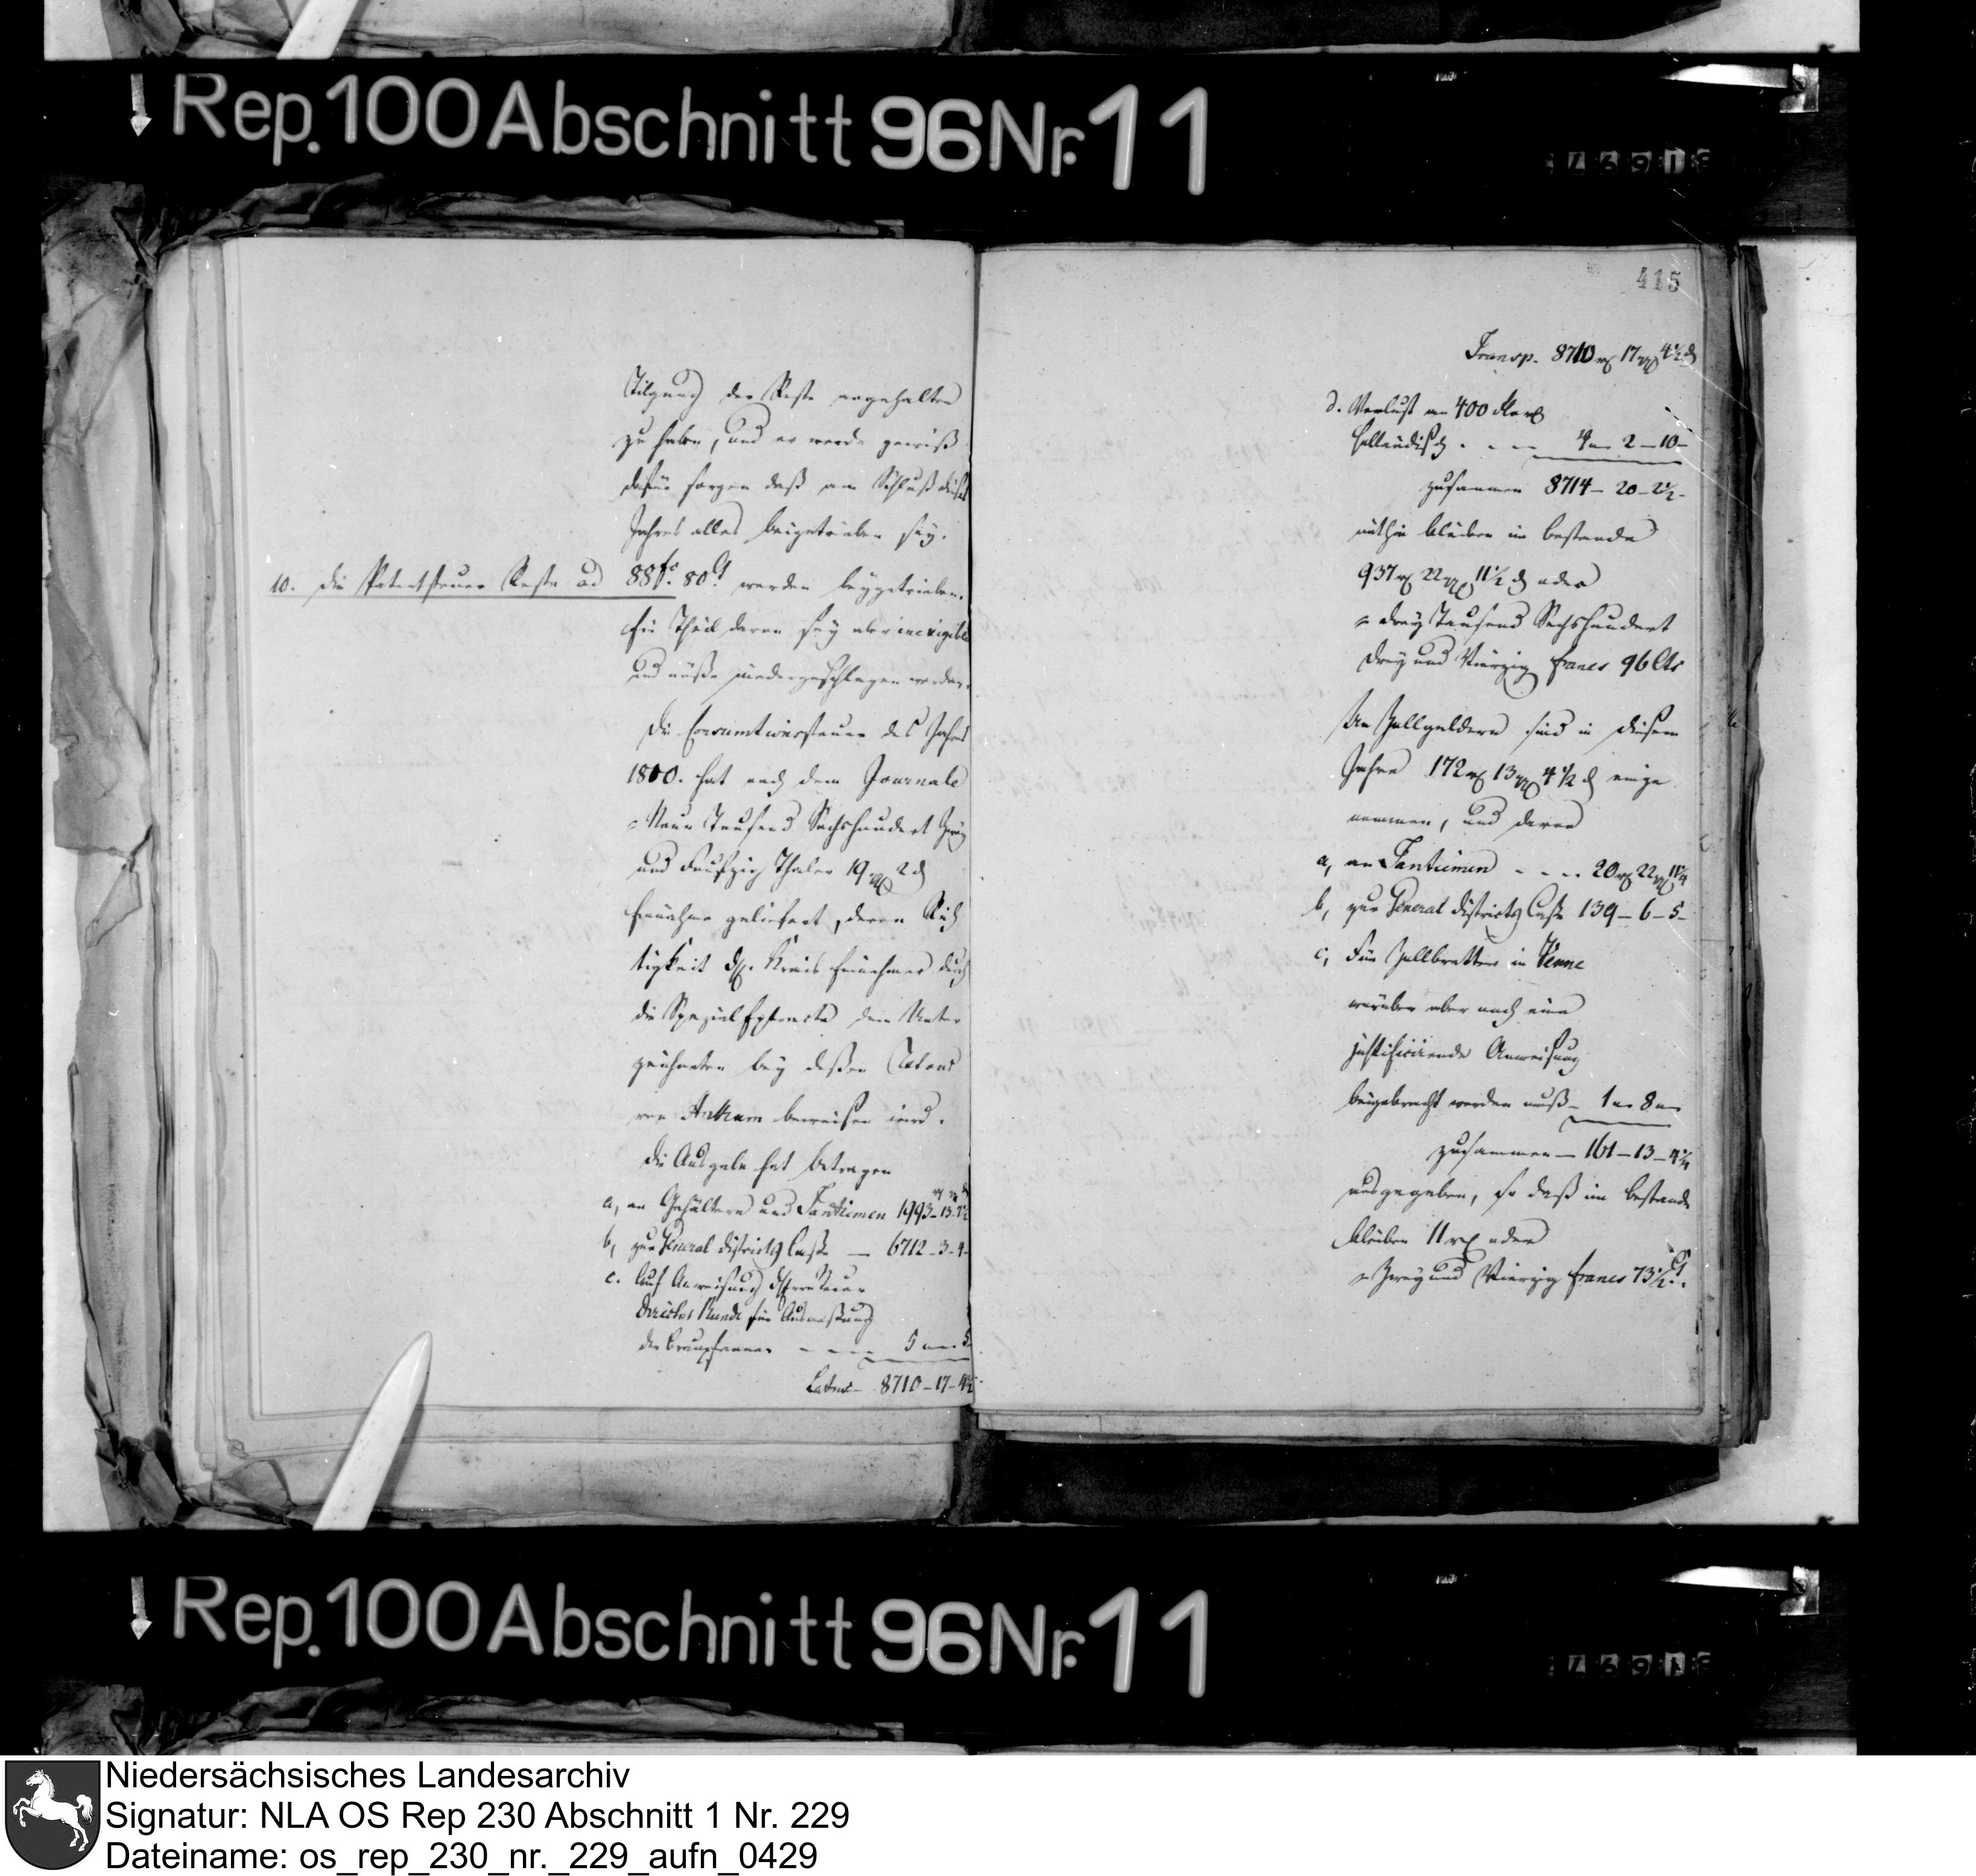 Rep. 100 Abschnitt 96 Nr. 11
Tilgung der Reste angehalten
zu haben, und er werde gewiß
dafür sorgen daß am Schluß dieses
Jahres alles beigetrieben sey.
10. die Patentsteuer Reste ad 88 fr. 80 Ct werden beygetrieben.
Ein Theil davon sey aber inexigible
und müße niedergeschlagen werden.
Die Consumtionssteuer des Jahrs
1810. hat nach dem Journale
= Neun Tausend Sechshundert Zwey
und Funfzig Thaler 19 ggl 2 d
Einnahme geliefert, deren Rich
tigkeit d. Kreis Einnehmer durch
die Spezial Extracte dem Unter
zeichneten bey deßen Retour
von Ankum beweisen wird.
Die Ausgabe hat betragen
a, an Gehältern und Tantiemen 1993 - 13 - 7½
b, zur General Districts Casse — 6712 - 3 - 4 -
c. Auf Anweisung d. Herrn Steuer
Director Runde für Ausmeßung
der Braupfannen - - - 5 - „ - 5
Latus - 8710 - 17 - 4½
415
Transp. 8710 rt 17 ggl 4½ d
d. Verlust an 400
holländisch . - - - 4 „ 2 - 10 -
zusammen 8714 - 20 - 2½ -
mithin bleiben im bestande
937 rt 22 ggl 11½ d oder
= drey Tausend Sechshundert
drey und Vierzig francs 96 Cts
An Zollgeldern sind in diesem
Jahre 172 rt 13 ggl 4½ d einge
nommen, und davon
a, an Tantiemen - - - - 20 rt 22 ggl 11¼
b, zur General Districts Casse 139 - 6 - 5 -
c, Für Zollbretter in Venne
worüber aber noch eine
justificirende Anweisung
beigebracht werden muß - 1 „ 8 „
zusammen — 161 - 13 - 4¼
ausgegeben, so daß im bestande
bleiben 11 rt oder
= Zwey und Vierzig francs 73½ Ct.
Rep. 100 Abschnitt 96 Nr. 11
Niedersächsisches Landesarchiv
Signatur: NLA OS Rep 230 Abschnitt 1 Nr. 229
Dateiname: os_rep_230_nr._229_aufn_0429